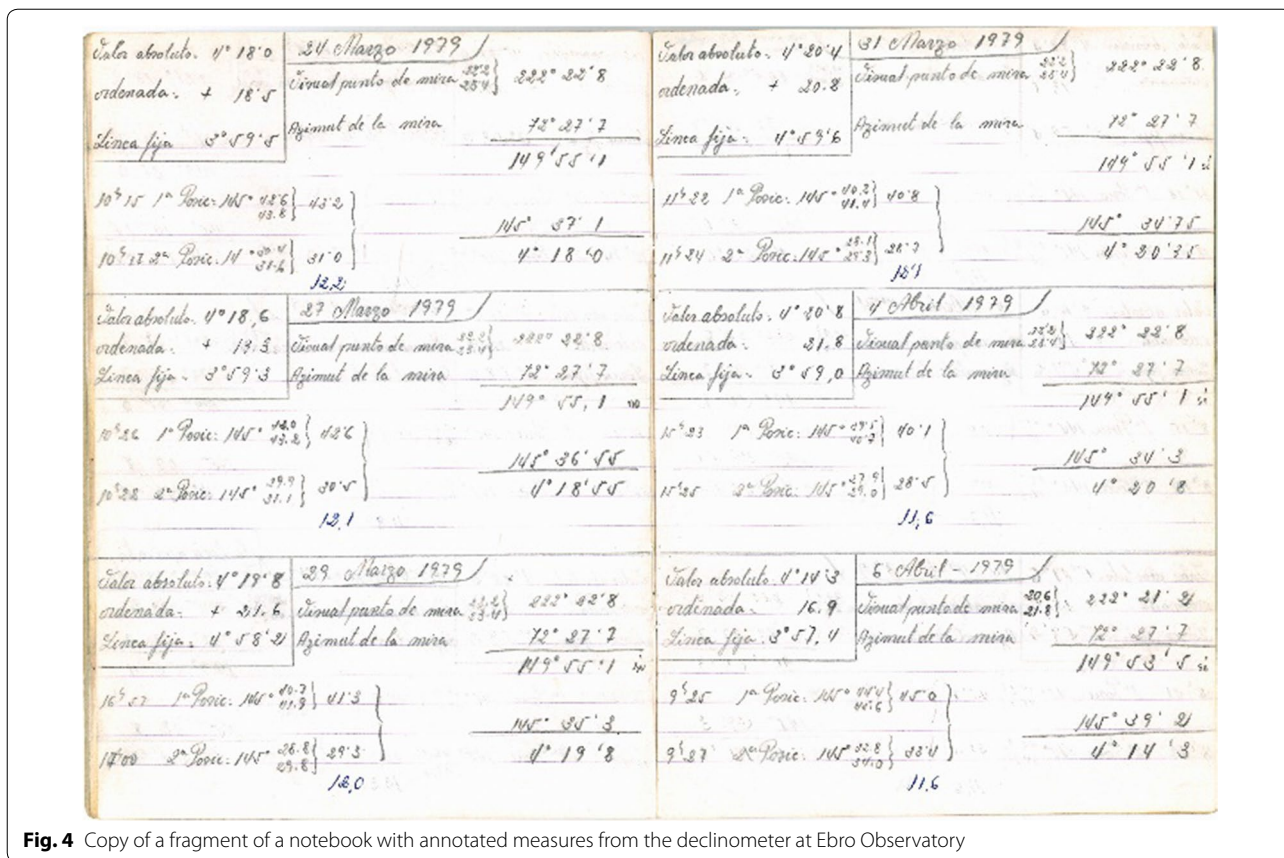 Valor absoluto. 4° 18'0
ordenada. + 18'5
Linea fija 3° 59'5
24 Marzo 1979
Visual punto de mira 22'2 23'4} 222° 22'8
Azimut de la mira 72° 27'7
149° 55'1
10h 15 1ª Posic: 145° 42'6 43.8} 43'2
10h 17 2ª Posic: 14 ° 30'4 31.6} 31'0
145° 37' 1
4° 18'0
12,2
Valor absoluto. 4° 18,6
ordenada. + 19.3
Linea fija. 3° 59'3
27 Marzo 1979
Visual punto de mira 22.2 23.4} 222° 22'8
Azimut de la mira 72° 27'7
149° 55,1
10h 26 1ª Posic: 145° 42.0 43.2} 42'6
10h 28 2ª Posic: 145° 29.9 31.1} 30'5
145° 36'55
4° 18'55
12,1
Valor absoluto. 4° 19'8
ordenada. + 21,6
Linea fija. 4° 58'2
29 Marzo 1979
Visual punto de mira 22.2 23.4} 222° 22'8
Azimut de la mira 72° 27'7
149° 55'1
16h 57 1ª Posic: 145° 40.7 41.9} 41'3
17h 00 2ª Posic: 145° 28.8 29.8} 29'3
145° 35'3
4° 19'8
12,0
Valor absoluto. 4° 20'4
ordenada. + 20.8
Linea fija. 4° 59'6
31 Marzo 1979
Visual punto de mira 22'2 23'4} 222° 22'8
Azimut de la mira 72° 27'7
149° 55'1
11h 22 1ª Posic: 145° 40.2 41.4} 40'8
11h 24 2ª Posic: 145° 28.1 29.3} 28'7
145° 34'75
4° 20'35
12'1
Valor absoluto. 4° 20'8
ordenada. 21.8
Linea fija. 3° 59,0
4 Abril 1979
Visual punto de mira 22'2 23'4} 222° 22'8
Azimut de la mira 72° 27'7
149° 55'1
15h 23 1ª Posic: 145° 39.5 40.7} 40'1
15h 25 2ª Posic: 145° 27.9 29.0} 28'5
145° 34'3
4° 20'8
11,6
Valor absoluto. 4° 14'3
ordenada. 16.9
Linea fija. 3° 57,4
6 Abril - 1979
Visual punto de mira 20,6 21.8} 222° 21'2
Azimut de la mira 72° 27'7
149° 53'5
9h 25 1ª Posic: 145° 44.4 45.6} 45'0
9h 27 2ª Posic: 145° 32.8 34.0} 33'4
145° 39'2
4° 14'3
11,6
Fig. 4 Copy of a fragment of a notebook with annotated measures from the declinometer at Ebro Observatory